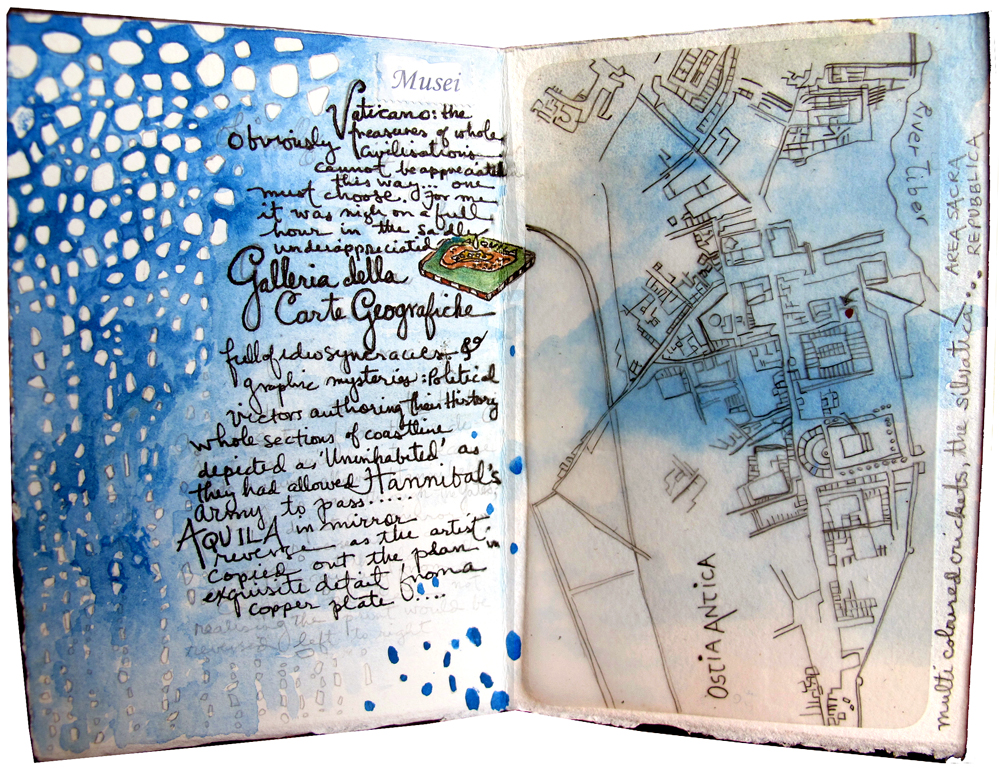 Musei
Vaticano: the
Obviously treasures of whole
Civilisations
cannot be appreciated
this way... one
must choose. For me
it was nigh on a full
hour in the sadly
underappreciated
AQUILA
Galleria della
Carte Geografiche
full of idiosyncracies &
graphic mysteries: Political
Victors authoring their History
whole sections of coastline
depicted as 'Uninhabited' as
they had allowed Hannibal's
army to pass......
AQUILA in mirror
reverse as the artist
copied out the plan in
exquisite detail from a
copper plate .....
realising the print would be
reversed left to right
River Tiber
AREA SACRA
REPUBBLICA
OSTIA ANTICA
multi coloured crickets, the silvatica...